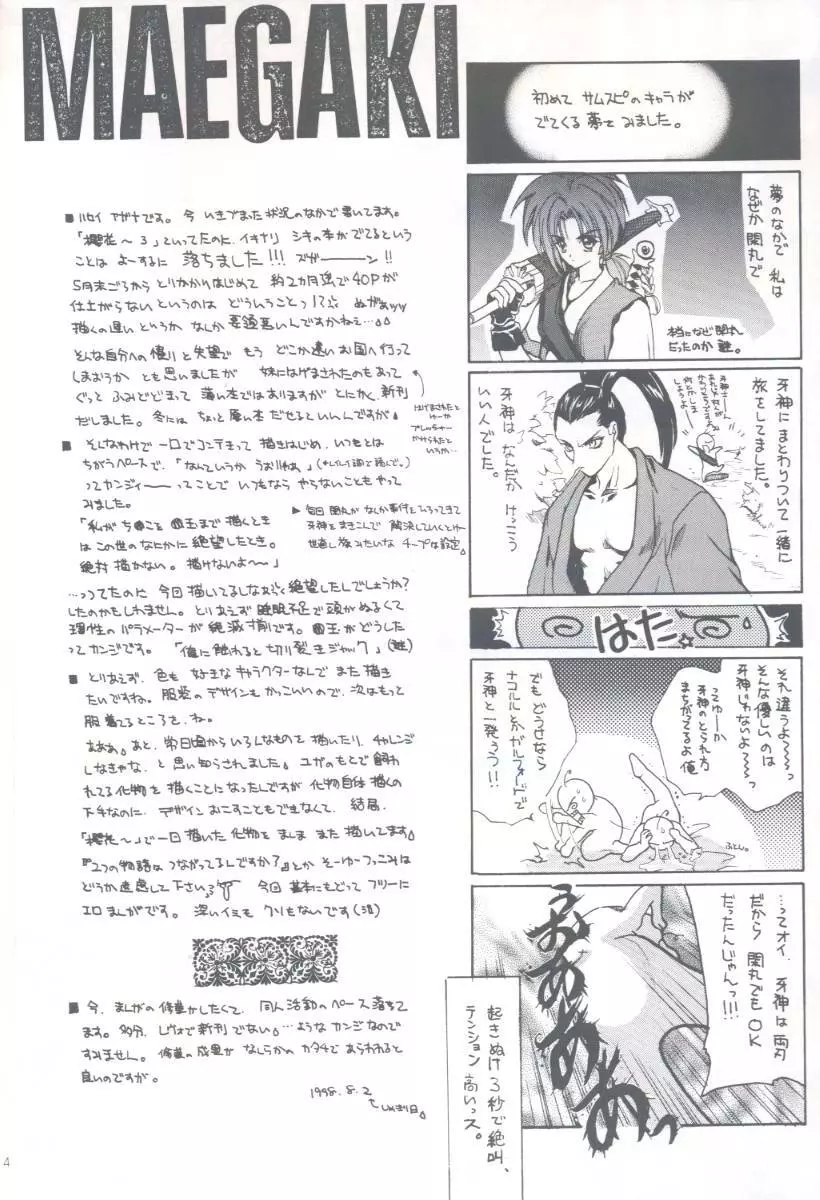 MAEGAKI
■ ハセイ アガナです。今 いきづまった状況のなかで書いてます。
「櫻花〜3」といってたのに、イキナリ シキの本がでてるという
ことは よーするに 落ちました!!! ズガーーーン!!
5月末ごろから とりかかりはじめて 約2カ月強で40Pが
仕上がらないというのは どういうことっ!? ぬがぁッッ
描くの遅いというか なんか要領悪いんですかねぇ…。
そんな自分への憤りと失望で もう どこか遠いお国へ行って
しまおうか とも思いましたが 妹にはげまされたのもあって
ぐっと ふみとどまって 薄い本ではありますが とにかく、新刊
だしました。冬には ちょっと厚い本 だせるといいんですが。
はげまされたと
ゆーか
プレッシャー
かけられたと
いうか…
■ そんなわけで 一日でコンテきって 描きはじめ、いつもとは
ちがうペースで、「なんていうか
ってカンジィーーーってことで いつもなら やらないことも やって
みました。
「私が ち●こと ●玉まで 描くとき
は この世のなにかに 絶望したとき。
絶対 描かない。描けないよ〜〜」
▶ 毎回 閑丸が なんか事件を ひろってきて
牙神をまきこんで 解決していくとゆー
世直し旅みたいな チープな設定。
…ってたのに 今回 描いてるしなぁ 絶望したんでしょうか?
したのかもしれません。とりあえず 睡眠不足で 頭が ぬるくて
理性の パラメーターが 絶滅寸前です。●玉が どうした
ってカンジです。「俺に触れると 切り裂きジャック」(謎)
■ とりあえず、色も 好きな キャラクターなんで また 描き
たいですね。服装の デザインも かっこいいので、次はもっと
服 着てるところを、ね。
ああぁ。あと、常日頃から いろんなものを 描いたり、チャレンジ
しなきゃな、と 思い知らされました。ユガのもとで 飼わ
れてる化物を 描くことに なったんですが 化物自体 描くの
下手なのに、デザイン おこすことも できなくて、結局、
「櫻花〜」で一回 描いた 化物を まんま また 描いてます。
『2つの物語は つながってるんですか?』とか そーゆーつっこみは
どうか 遠慮して 下さい。今回 基本にもどって フツーに
エロまんがです。深いイミも クソもないです(泣)
■ 今、まんがの 修業がしたくて、同人活動のペース 落ちて
ます。多分、レヴォで新刊 でない。…ようなカンジなので
すみません。修業の成果が なんらかの カタチで あらわれると
良いのですが。
1998.8.2
しめきり日。
初めて サムスピの キャラが
でてくる 夢を みました。
夢のなかで 私は
なぜか 閑丸で
本当になぜ 閑丸
だったのか 謎。
牙神にまとわりついて 一緒に
旅をしてました。
牙神は なんだか けっこう
いい人でした。
はた☆
それ違うよ〜〜っ
そんな優しいのは
牙神じゃないよ〜〜っ
ってゆーか
牙神のとられ方
まちがってるよ 俺
でも どうせなら
ナコルルとか ガルフォードで
牙神と 一発ゥ!!
ふとん。
…ってオイ、牙神は 両刀
だから 閑丸でも OK
だったんじゃんっ!!!
うおあああぁっ
起きぬけ 3秒で 絶叫、
テンション 高いっス。
4